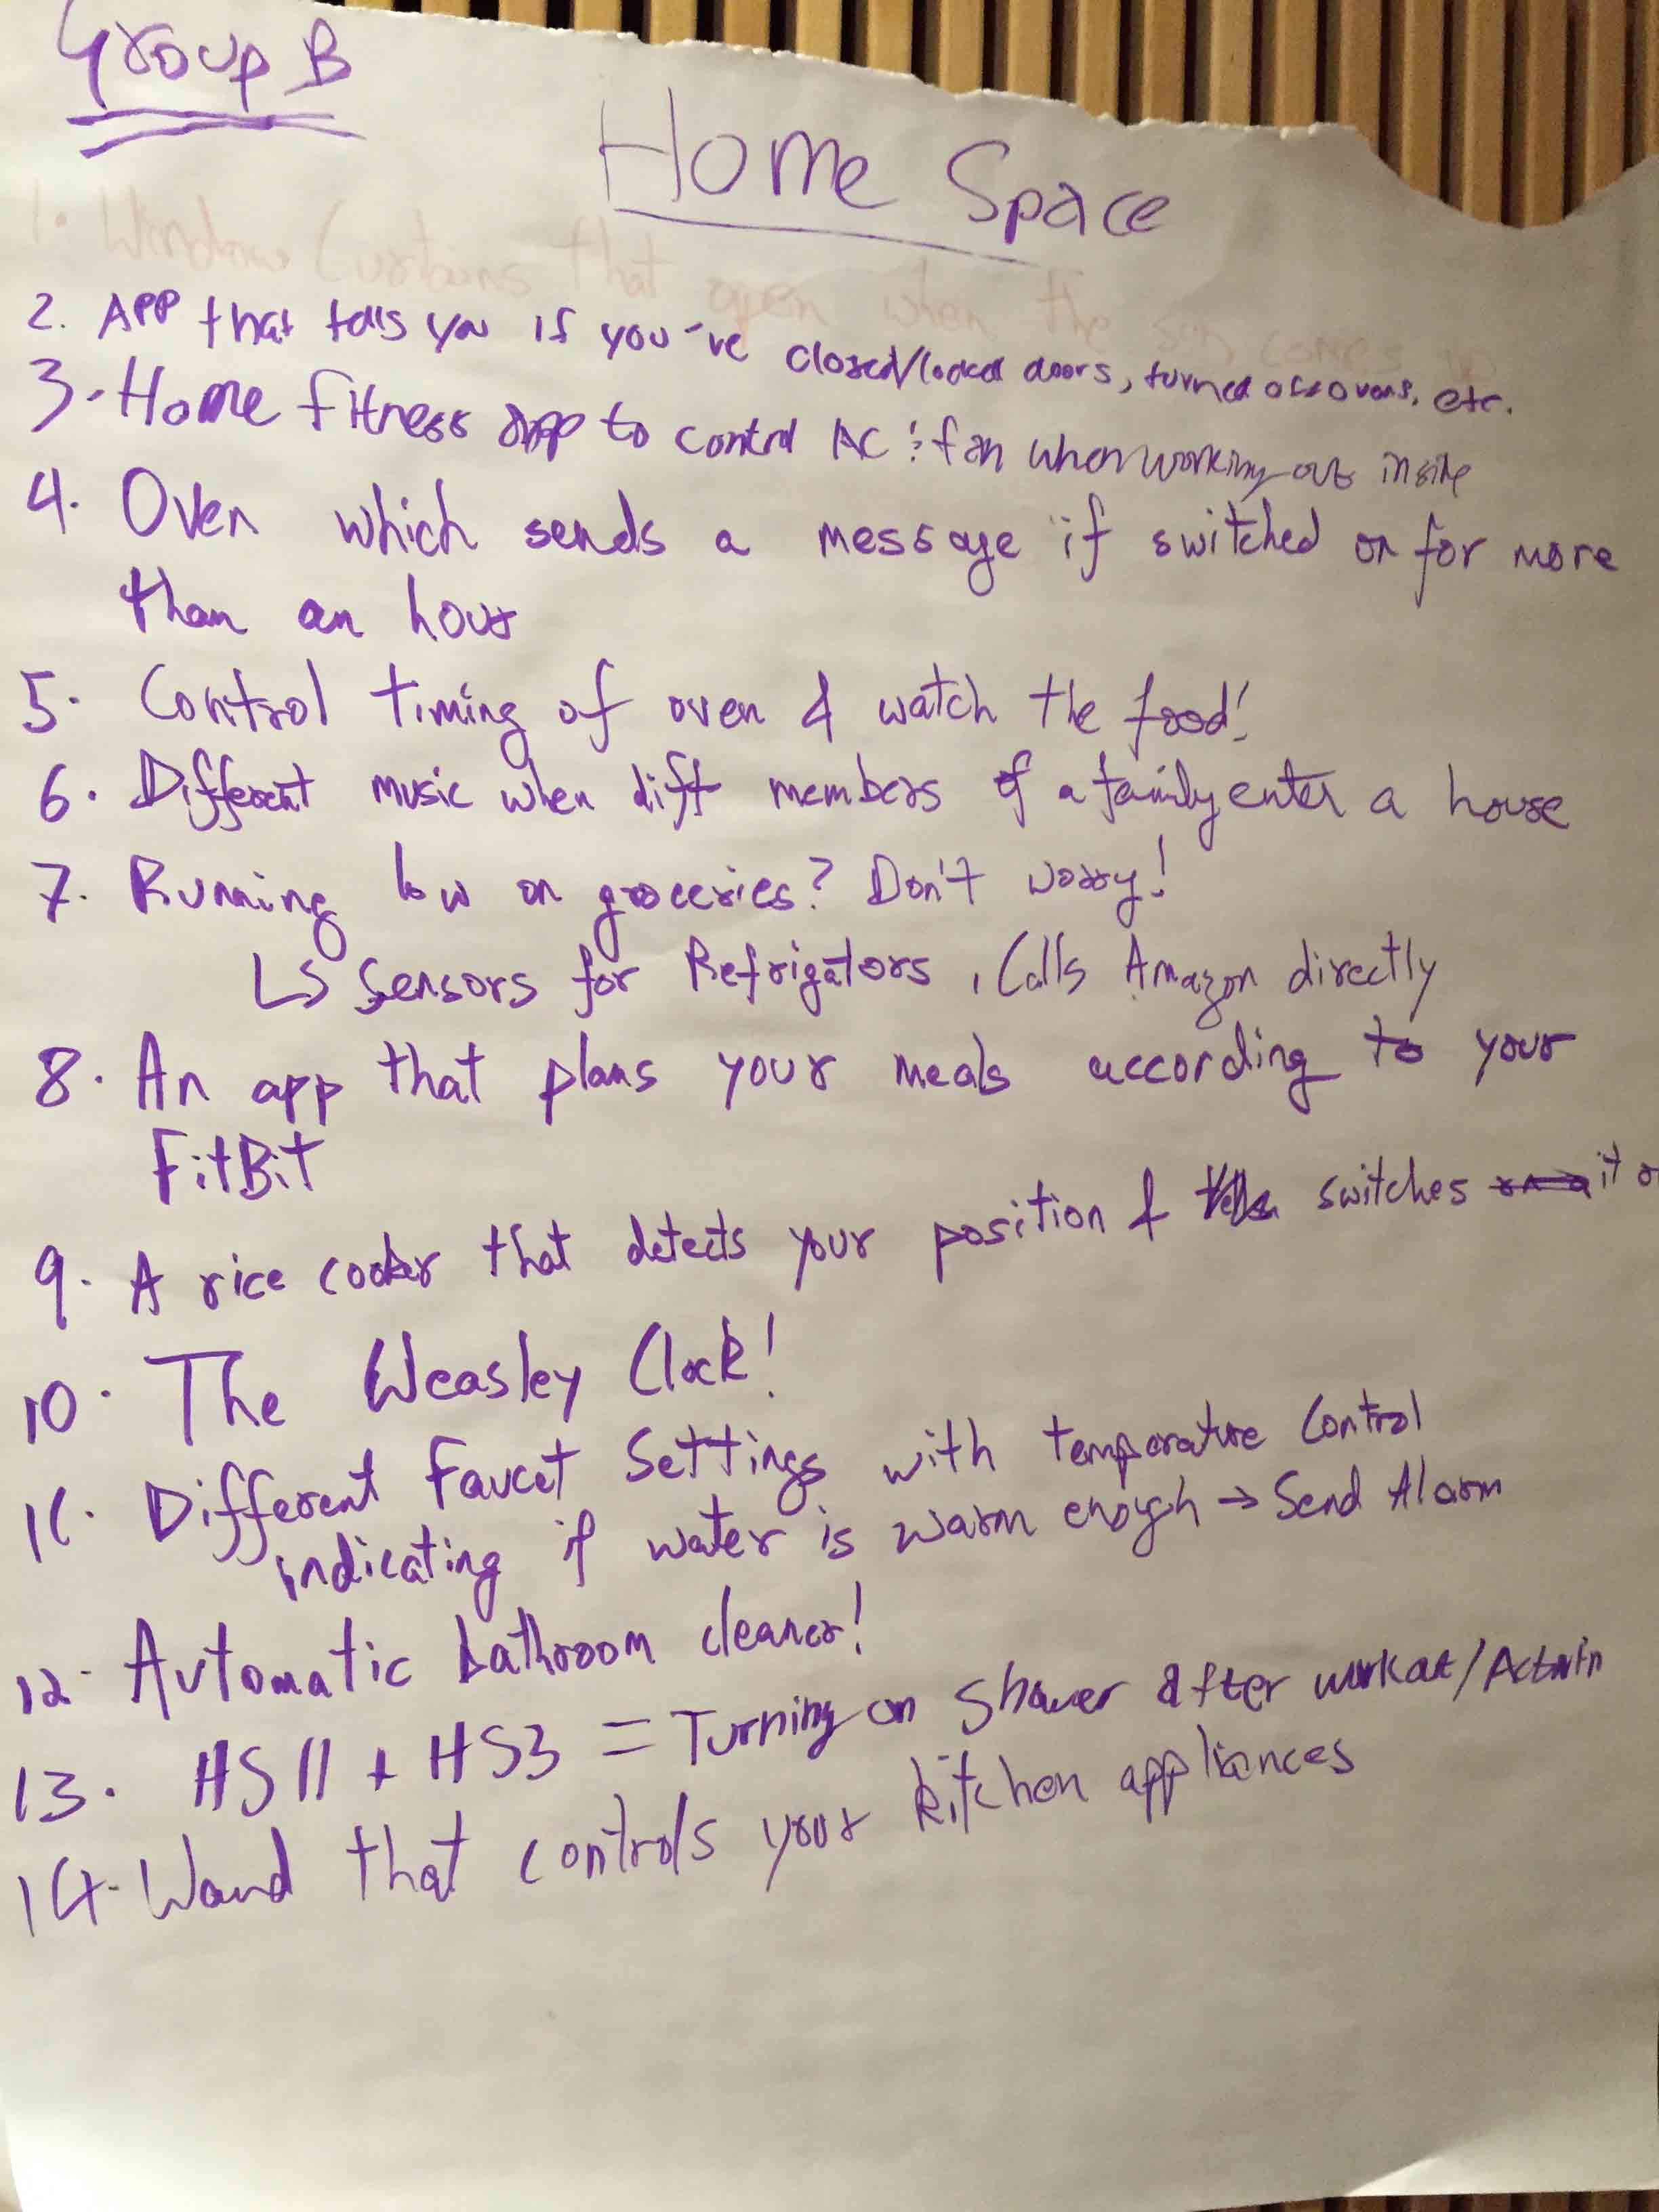 Group B
Home Space
1. Window Curtains that open when the sun comes up
2. APP that tells you if you've closed/locked doors, turned off ovens, etc.
3. Home fitness app to control AC & fan when working out inside
4. Oven which sends a message if switched on for more
than an hour
5. Control timing of oven & watch the food!
6. Different music when diff members of a family enter a house
7. Running low on groceries? Don't worry!
Ls Sensors for Refrigators, Calls Amazon directly
8. An app that plans your meals according to your
FitBit
9. A rice cooker that detects your position & switches it
10. The Weasley Clock!
11. Different Faucet Settings with temperature Control
indicating if water is warm enough → Send Alarm
12. Automatic bathroom cleaner!
13. HS11 + HS3 = Turning on Shower after workout/
14. Wand that controls your kitchen appliances